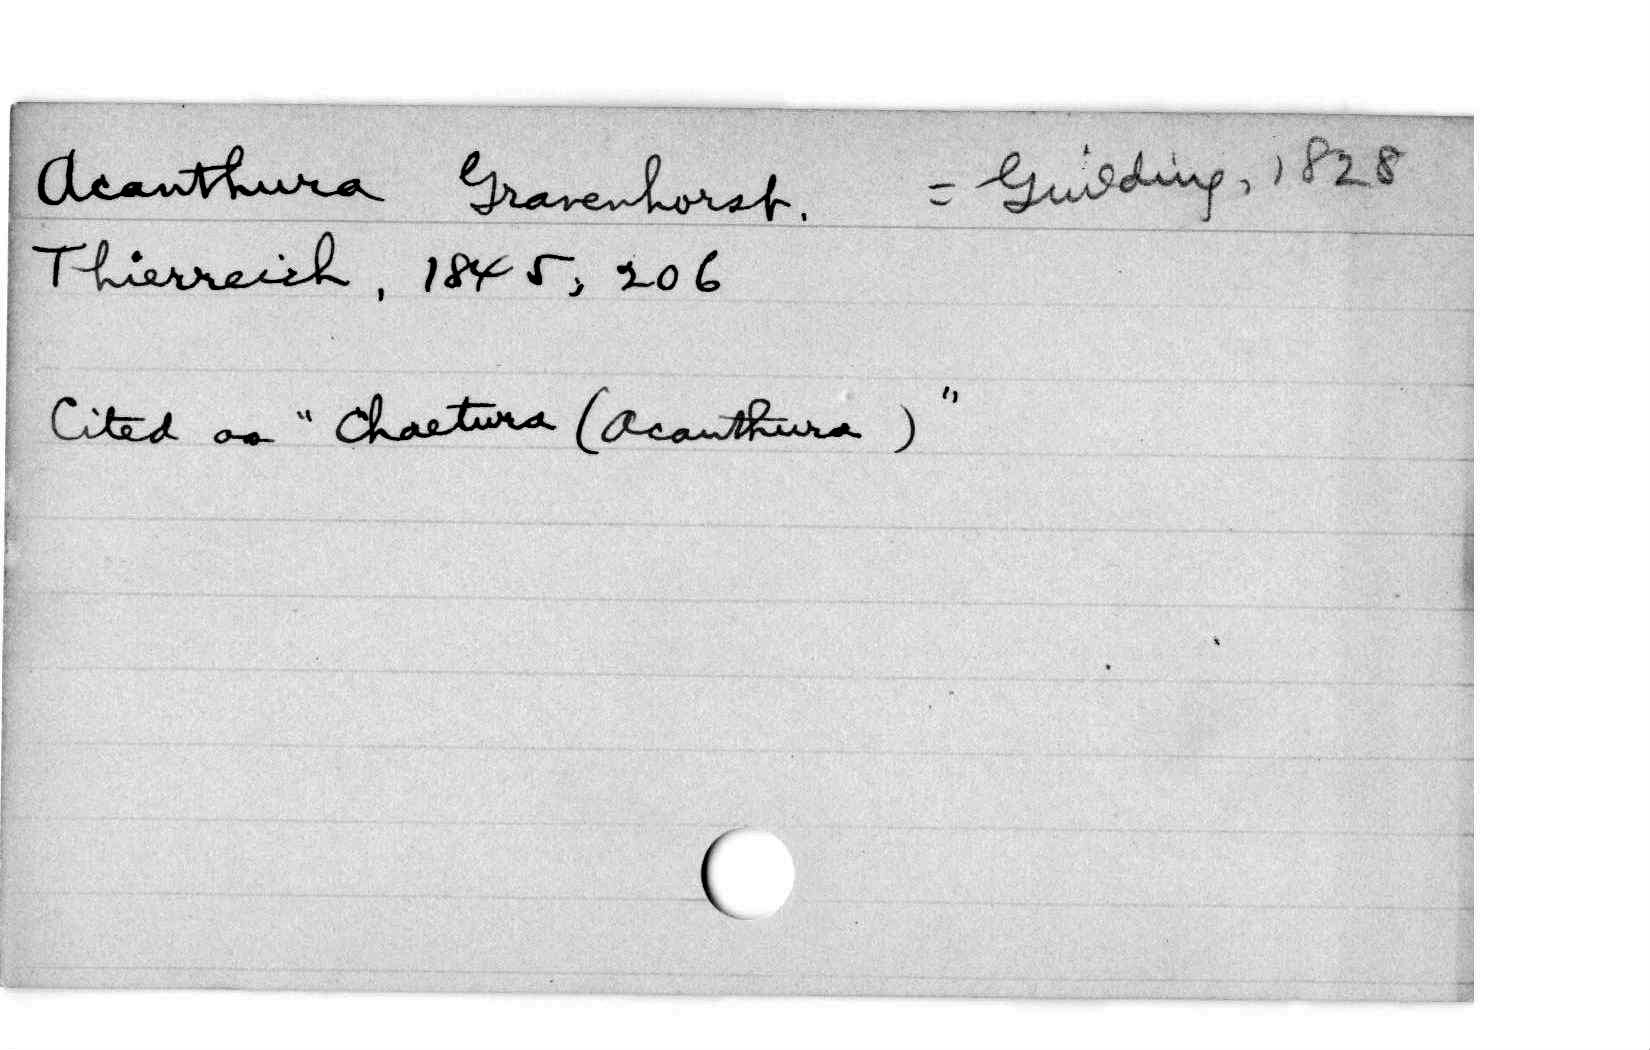 Acanthura Gravenhorst. = Guilding, 1828
Thierreich, 1845, 206
Cited as "Chaetura (Acanthura)"